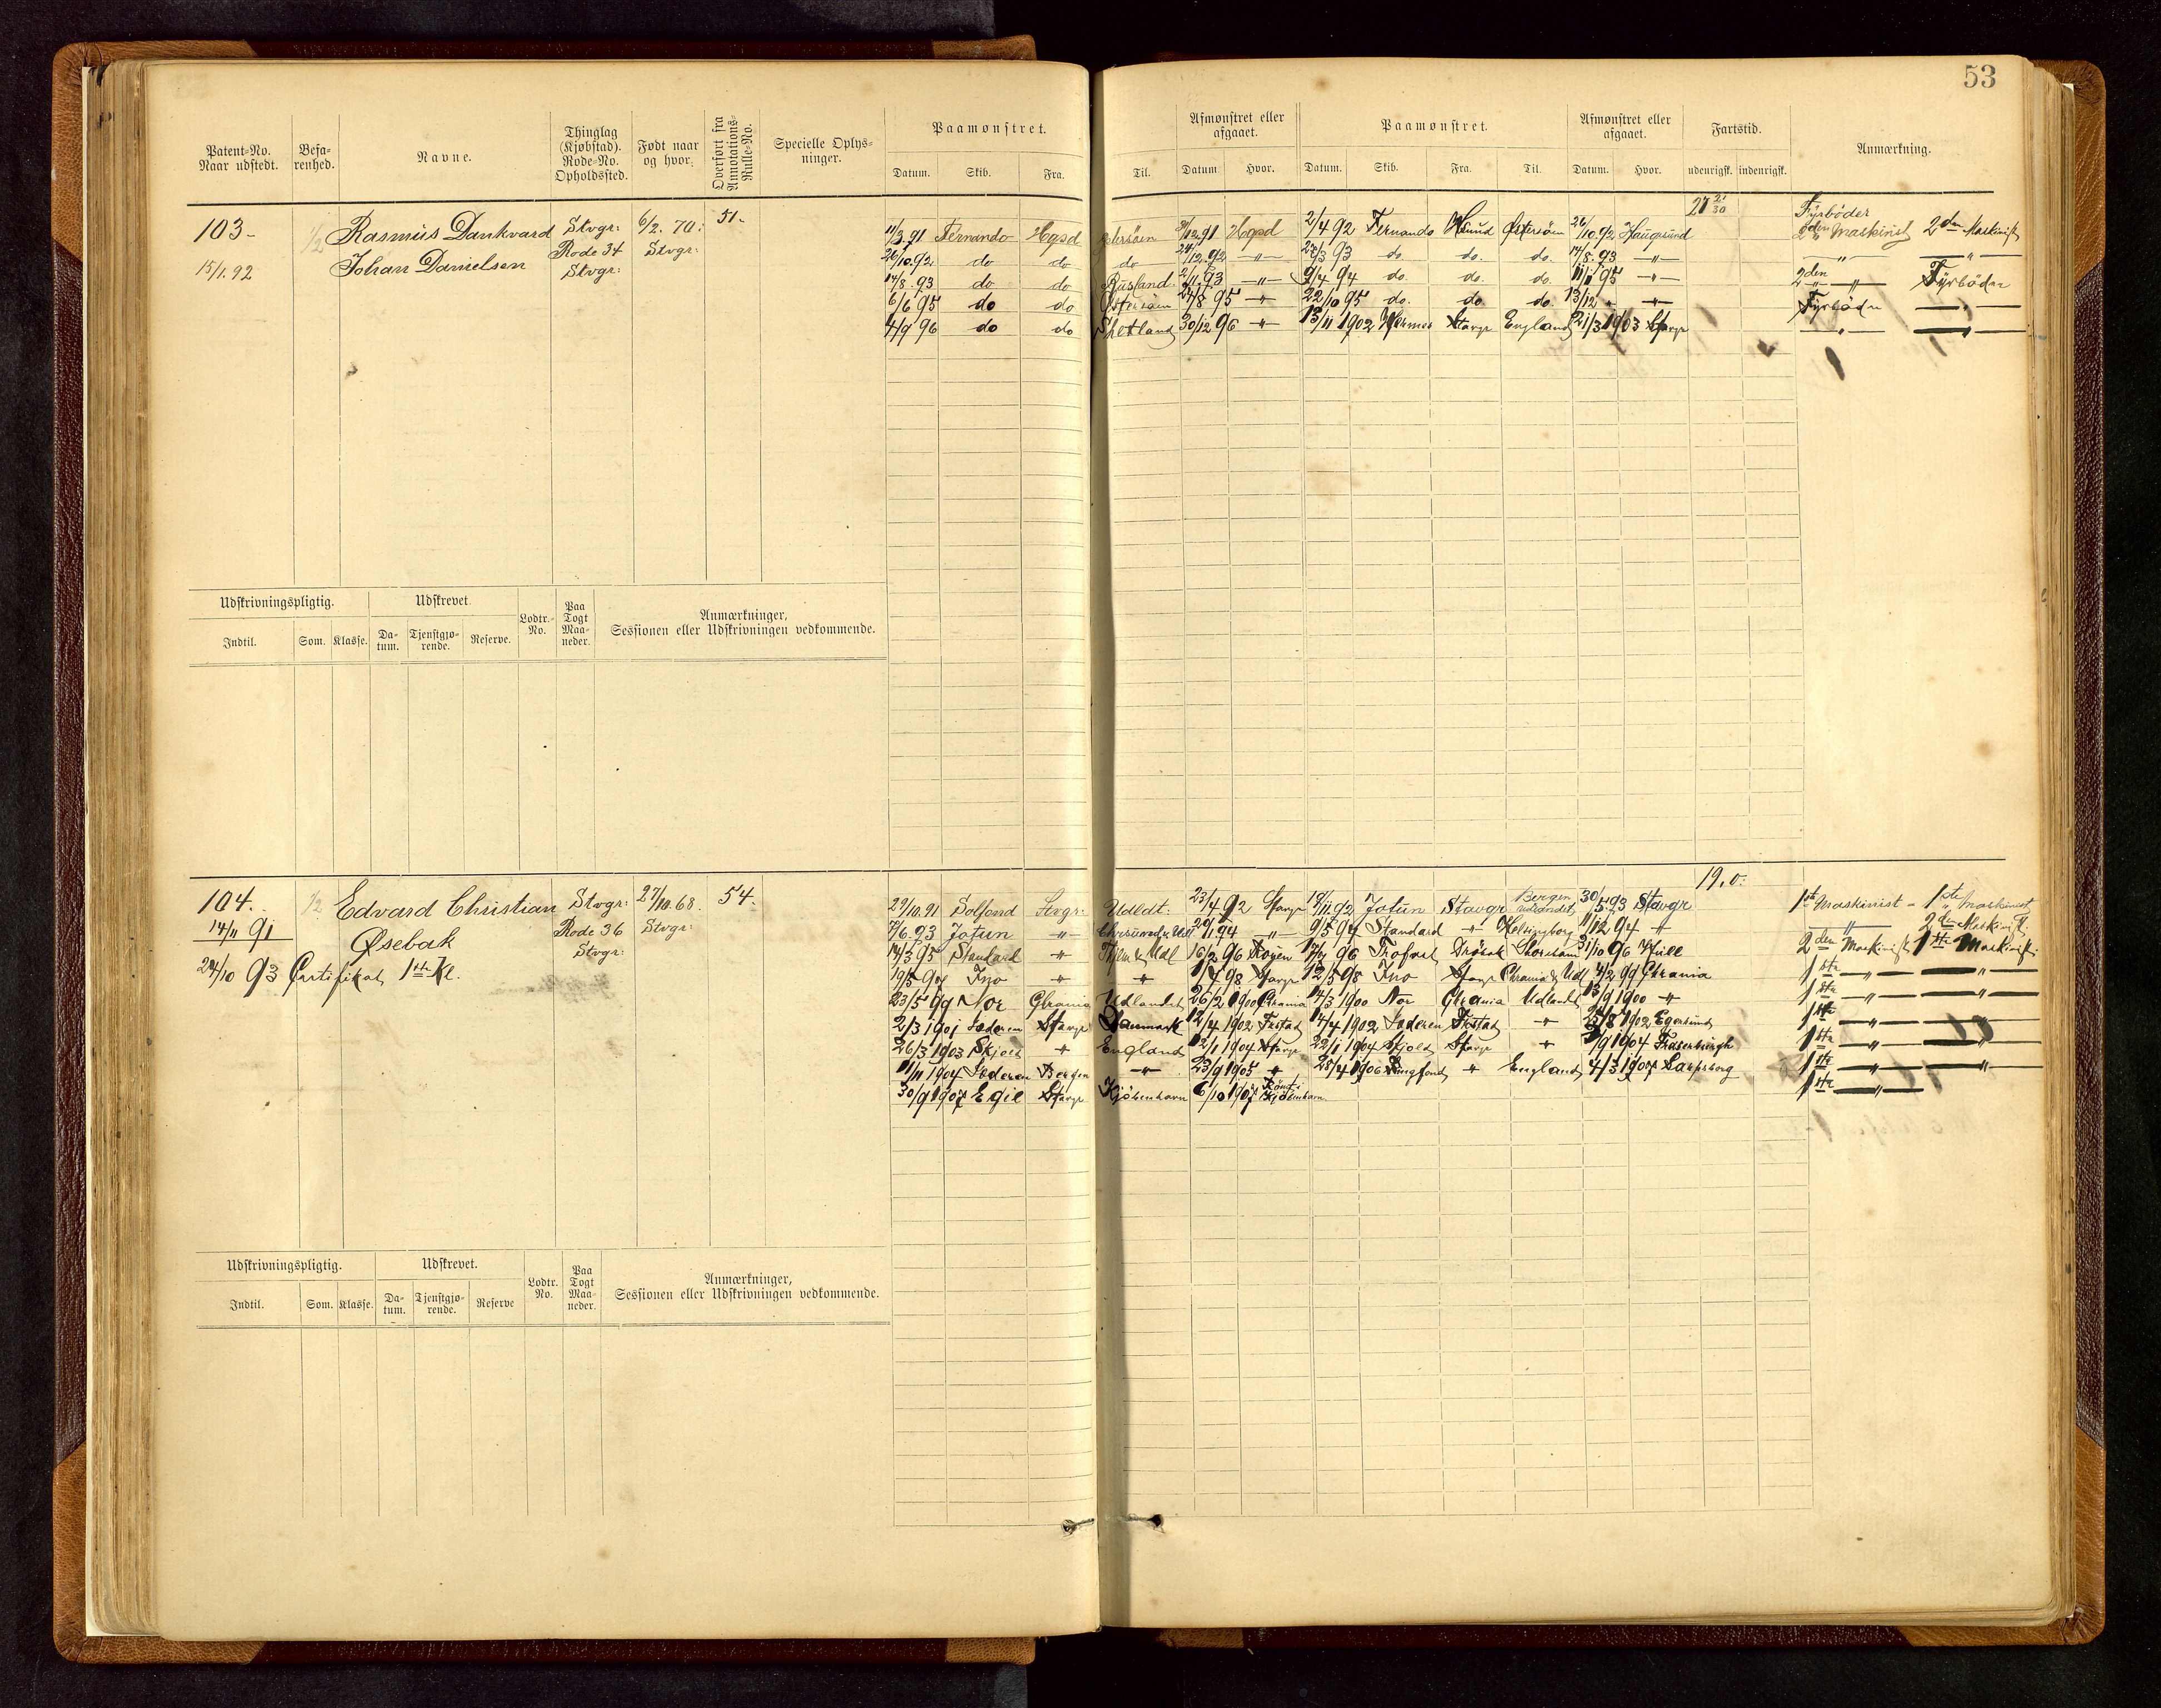 53
Patent=No. Naar udstedt. Befa=renhed. Navne. Thinglag (Kjøbstad). Rode=No. Opholdssted. Født naar og hvor. Overført fra Annotations=Rulle=No. Specielle Oplys=ninger. Paamønstret. Afmønstret eller afgaaet. Paamønstret. Afmønstret eller afgaaet. Fartstid. Anmærkning.
Datum. Skib. Fra. Til. Datum. Hvor. Datum. Skib. Fra. Til. Datum. Hvor. udenrigsk. indenrigsk.
27 21/30
103- 1/2 Rasmus Dankvard Stvgr: 6/2. 70: 51- 11/3 91 Fernando Hgsd Østersøen 31/12 91 Hgsd 2/4 92 Fernando H sund Østersøen 26/10 92 Haugesund Fyrbøder 2den Maskinist
15/1. 92 Johan Danielsen Rode 34 Stvgr: Stvgr: 26/10 92 do do do 24/12 92 -"- 28/3 93 do. do. do. 14/8 93 -"- 2den Maskinist -"-
14/8 93 do do Rusland 2/11 93 -"- 9/4 94 do. do. do. 11/1 95 -"- 2den -"- Fyrbøder
6/6 95 do do Østersøen 24/8 95 -"- 22/10 95 do. do. do. 13/12 " -"- Fyrbøder -"-
4/9 96 do do Shetland 30/12 96 -"- 13/11 1902 Hermes Stavgr England 21/3 1903 Stavgr -"- -"-
Udskrivningspligtig. Udskrevet. Lodtr.=No. Paa Togt Maa=neder. Anmærkninger, Sessionen eller Udskrivningen vedkommende.
Indtil. Som. Klasse. Da=tum. Tjenstgjø=rende. Reserve.
19,0.
104. 1/2 Edvard Christian Stvgr: 27/10 68. 54. 29/10. 91 Solfond Stvgr: Udldt: 23/4 92 Stavgr 18/11 92 Jotun Stavgr Bergen udlandet 30/5 93 Stavgr 1ste Maskinist - 1ste Maskinist
14/11 91 Øsebak Rode 36 Stvgr: Stvgr: 7/6 93 Jotun -"- 20/1 94 -"- 9/5 94 Standard -"- Helsingborg 11/12 94 " -"- 2den Maskinist
24/10 93 Certifikat 1ste Kl. 14/3 95 Standard -"- 16/2 96 17/4 96 Trofast Drøbak Shoreham 31/10 96 Hull 2den Maskinist 1ste Maskinist
Ino " " 1/4 98 Stavgr 12/5 98 Ino Stavgr Chrania & Udl 4/2 99 Chrania 1ste -"- -"-
23/5 99 Nor Chrania Udlandet 26/2 1900 Chrania 14/3 1900 Nor Chrania Udlandet 13/9 1900 " 1ste -"- -"-
2/3 1901 Jæderen Stavgr Danmark 12/4 1902 Frstad 14/4 1902 Jæderen Frstad " 25/8 1902 Egersund 1ste -"- -"-
26/3 1903 Skjold " England 12/1 1904 Stavgr 22/1 1904 Skjold Stavgr " 9/9 1904 Fraserburgh 1ste -"- -"-
11/11 1904 Jæderen Bergen -"- 23/9 1905 " 28/4 1906 Ringfond " England 4/3 1907 Sarpsborg 1ste -"- -"-
30/9 1907 Egil Stavgr Kjöbenhavn 6/10 1907 Römt i Kjöbenhavn 1ste -"-
Udskrivningspligtig. Udskrevet. Lodtr. No. Paa Togt Maa=neder. Anmærkninger, Sessionen eller Udskrivningen vedkommende.
Indtil. Som. Klasse. Da=tum. Tjenstgjø=rende. Reserve